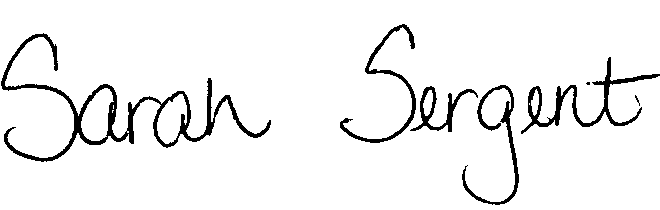 Sarah Sergent